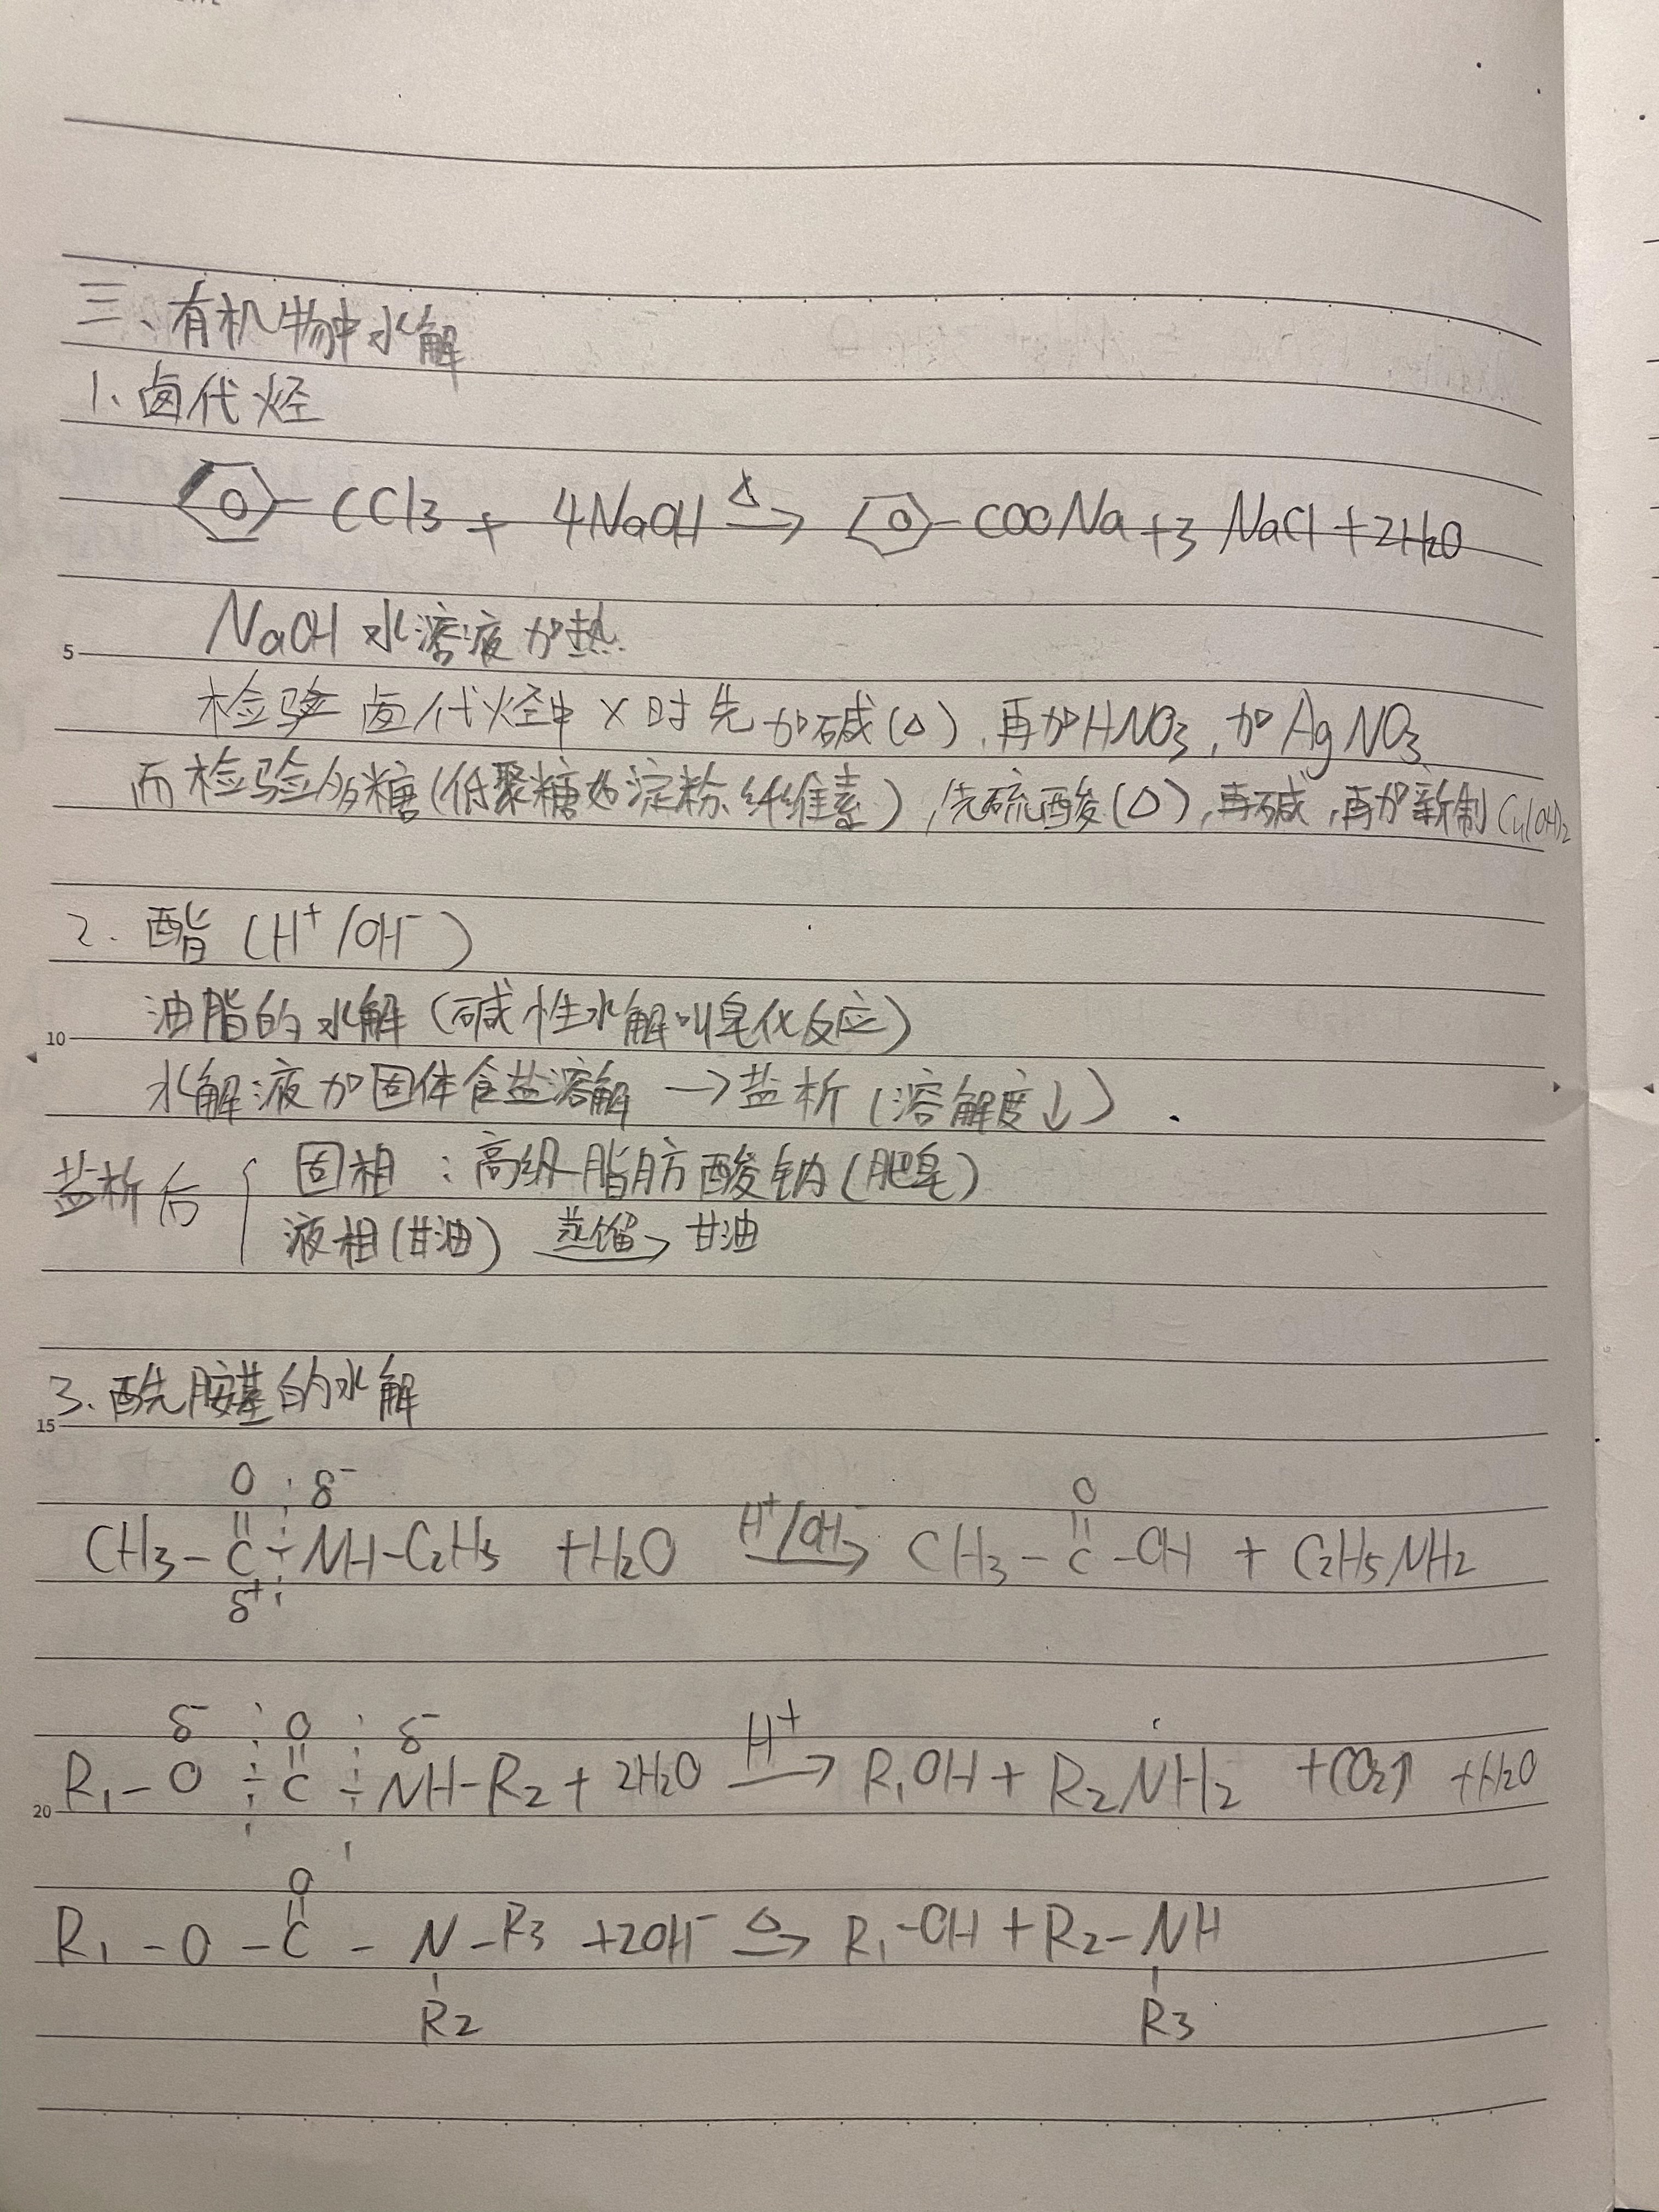 三、有机物中水解
1、卤代烃
⌬-CCl3 + 4NaOH →(△) ⌬-COONa + 3NaCl + 2H2O
5
NaOH水溶液加热
检验卤代烃中X时先加碱(△),再加HNO3,加AgNO3
而检验多糖(似聚糖如淀粉、纤维素),先硫酸(△),再碱,再加新制Cu(OH)2
2.酯(H+/OH-)
10
油脂的水解(碱性水解叫皂化反应)
水解液加固体食盐溶解→盐析(溶解度↓)
盐析后{固相:高级脂肪酸钠(肥皂)
液相(甘油) 蒸馏→ 甘油
15
3.酰胺基的水解
O δ-
CH3-C-NH-C2H5 + H2O H+/OH-→ CH3-C(=O)-OH + C2H5NH2
δ+
δ- O δ-
20
R1-O-C-NH-R2 + 2H2O H+→ R1OH + R2NH2 + CO2↑ + H2O
O
R1-O-C-N-R3 + 2OH- △→ R1-OH + R2-NH
R2 R3